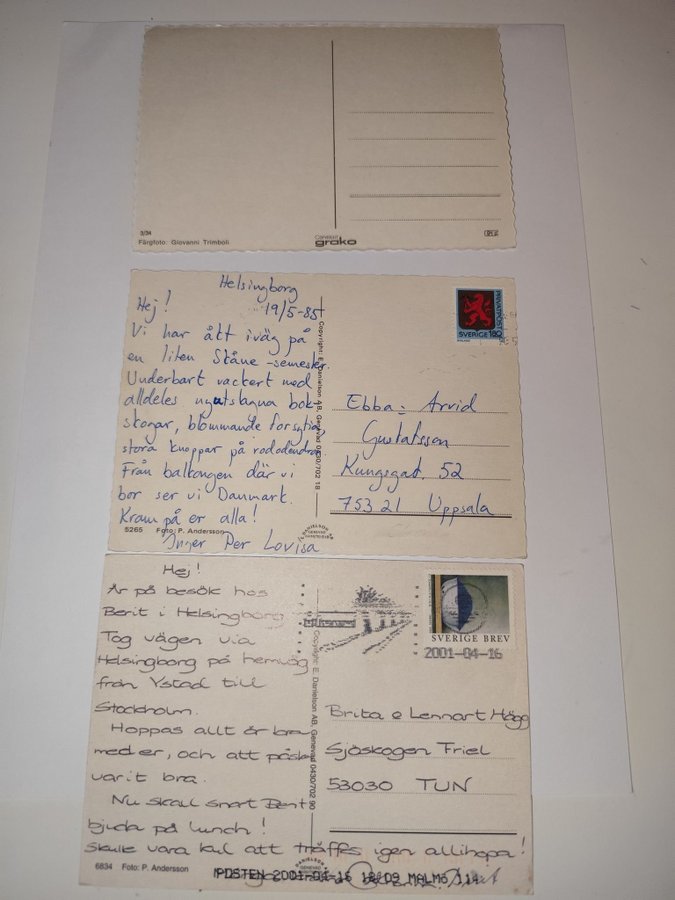 3/34
Färgfoto: Giovanni Trimboli
grako
Helsingborg
19/5-85
Hej!
Vi har ått iväg på
en liten Skåne-semester.
Underbart vackert med
alldeles nyutslagna bok-
skogar, blommande forsytia,
stora knoppar på rododendron
Från balkongen där vi
bor ser vi Danmark.
Kram på er alla!
Inger Per Lovisa
5265 Foto: P. Andersson
Copyright: E. Danielson AB, Genevad 0430/702 18
DANIELSON
GENEVAD
PRIVATPOST
SVERIGE 180
Ebba o Arvid
Gustafsson
Kungsgat. 52
753 21 Uppsala
Hej!
Är på besök hos
Berit i Helsingborg
Tog vägen via
Helsingborg på hemväg
från Ystad till
Stockholm.
Hoppas allt är bra
med er, och att påsken
varit bra.
Nu skall snart Berit
bjuda på lunch!
Skulle vara kul att träffs igen allihopa!
6834 Foto: P. Andersson
Copyright: E. Danielson AB, Genevad 0430/702 90
DANIELSON
GENEVAD
SVERIGE BREV
2001-04-16
Brita o Lennart Högg
Sjöskogen Friel
53030 TUN
POSTEN 2001-04-16 18:09 MALMÖ 114